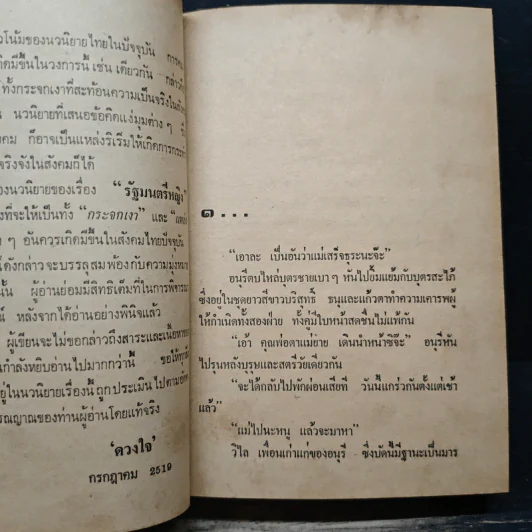 วโน้มของนวนิยายไทยในปัจจุบัน การ
กิดมีขึ้นในวงการนี้ เช่น เดียวกัน กล่าวคือ
ทั้งกระจกเงาที่สะท้อนความเป็นจริงในสังคม
น นวนิยายที่เสนอข้อคิดแง่มุมต่าง ๆ
งคม ก็อาจเป็นแหล่งริเริ่มให้เกิดการกระทำ
จริงจังในสังคมก็ได้
องนวนิยายของเรื่อง “รัฐมนตรีหญิง”
งที่จะให้เป็นทั้ง “กระจกเงา” และ
ง ๆ อันควรเกิดมีขึ้นในสังคมไทยปัจจุบัน
ได้ดังกล่าวจะบรรลุสมพ้องกับความมุ่งหมาย
นั้น ผู้อ่านย่อมมีสิทธิเต็มที่ในการพิจารณา
ณ์ หลังจากได้อ่านอย่างพินิจแล้ว
ผู้เขียนจะไม่ขอกล่าวถึงสาระและเนื้อหาของ
กำลังหยิบอ่านไปมากกว่านี้ ขอให้ทุกสิ่ง
อยู่ในนวนิยายเรื่องนี้ ถูกประเมินไปตาม
รณญาณของท่านผู้อ่านโดยแท้จริง
‘ดวงใจ’
กรกฎาคม 2519
๑...
“เอาละ เป็นอันว่าแม่เสร็จธุระนะจ๊ะ”
อนุรีตบไหล่บุตรชายเบา ๆ หันไปยิ้มแย้มกับบุตรสะใภ้
ซึ่งอยู่ในชุดยาวสีขาวบริสุทธิ์ ธนูและแก้วตาทำความเคารพผู้
ให้กำเนิดทั้งสองฝ่าย ทั้งคู่มีใบหน้าสดชื่นไม่แพ้กัน
“เอ้า คุณพ่อตาแม่ยาย เดินนำหน้าซิจ๊ะ” อนุรีหัน
ไปรุนหลังบุรุษและสตรีวัยเดียวกัน
“จะได้กลับไปพักผ่อนเสียที วันนี้แกร่วกันตั้งแต่เช้า
แล้ว”
“แม่ไปนะหนู แล้วจะมาหา”
วิไล เพื่อนเก่าแก่ของอนุรี ซึ่งบัดนี้มีฐานะเป็นมาร